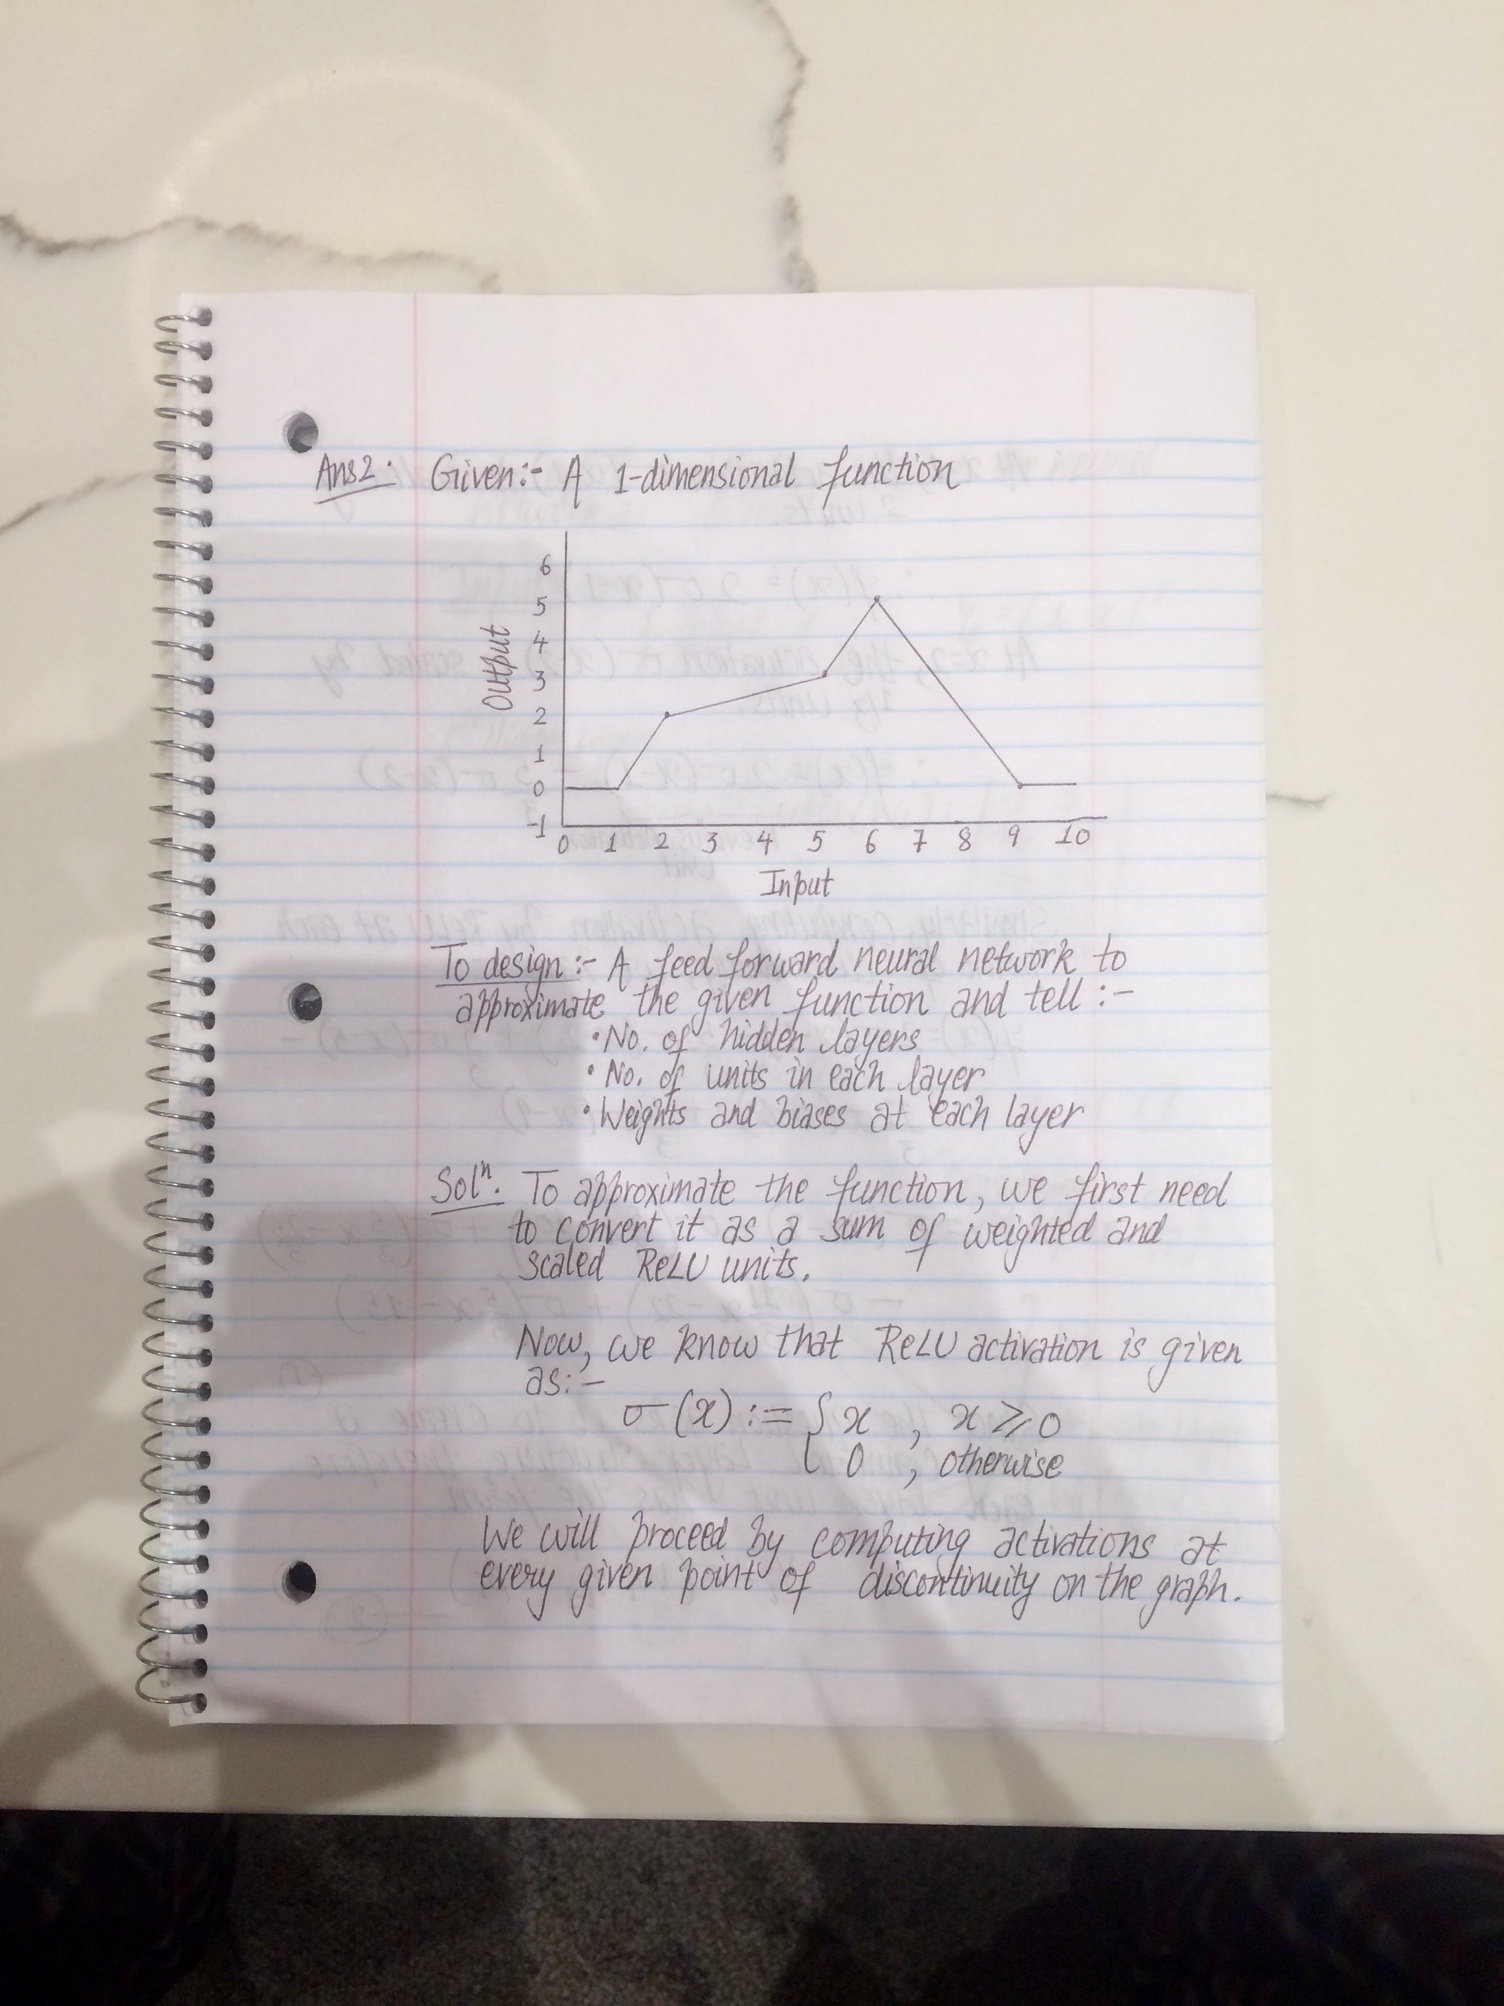 Ans2: Given:- A 1-dimensional function
6
5
4
3
2
1
0
-1
Output
0 1 2 3 4 5 6 7 8 9 10
Input
To design:- A feed forward neural network to
approximate the given function and tell :-
• No. of hidden layers
• No. of units in each layer
• Weights and biases at each layer
Solⁿ. To approximate the function, we first need
to convert it as a sum of weighted and
scaled ReLU units.
Now, we know that ReLU activation is given
as:-
σ(x) := { x , x ⩾ 0
0 , otherwise
We will proceed by computing activations at
every given point of discontinuity on the graph.